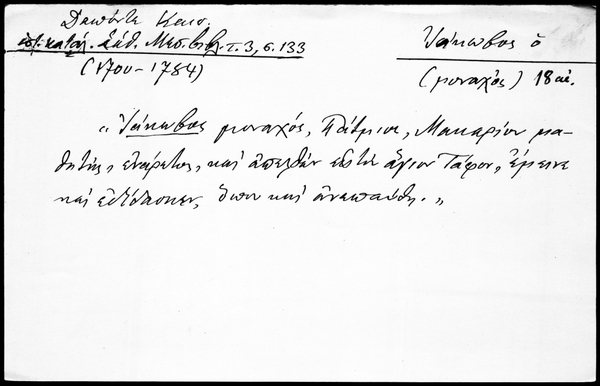 Δαπόντε Καισ.
ἱστ. κατάλ. Σάθ. Μεσ. βιβλ. τ. 3, σ. 133
(1700-1784)
Ἰάκωβος ὁ
(μοναχός) 18 αἰ.
"Ἰάκωβος μοναχός, Πάτμιος, Μακαρίου μα-
θητής, ἐνάρετος, καὶ ἀπελθὼν εἰς τὸν ἅγιον Τάφον, ἔμεινε
καὶ ἐδίδασκεν, ὅπου καὶ ἀνεπαύθη."